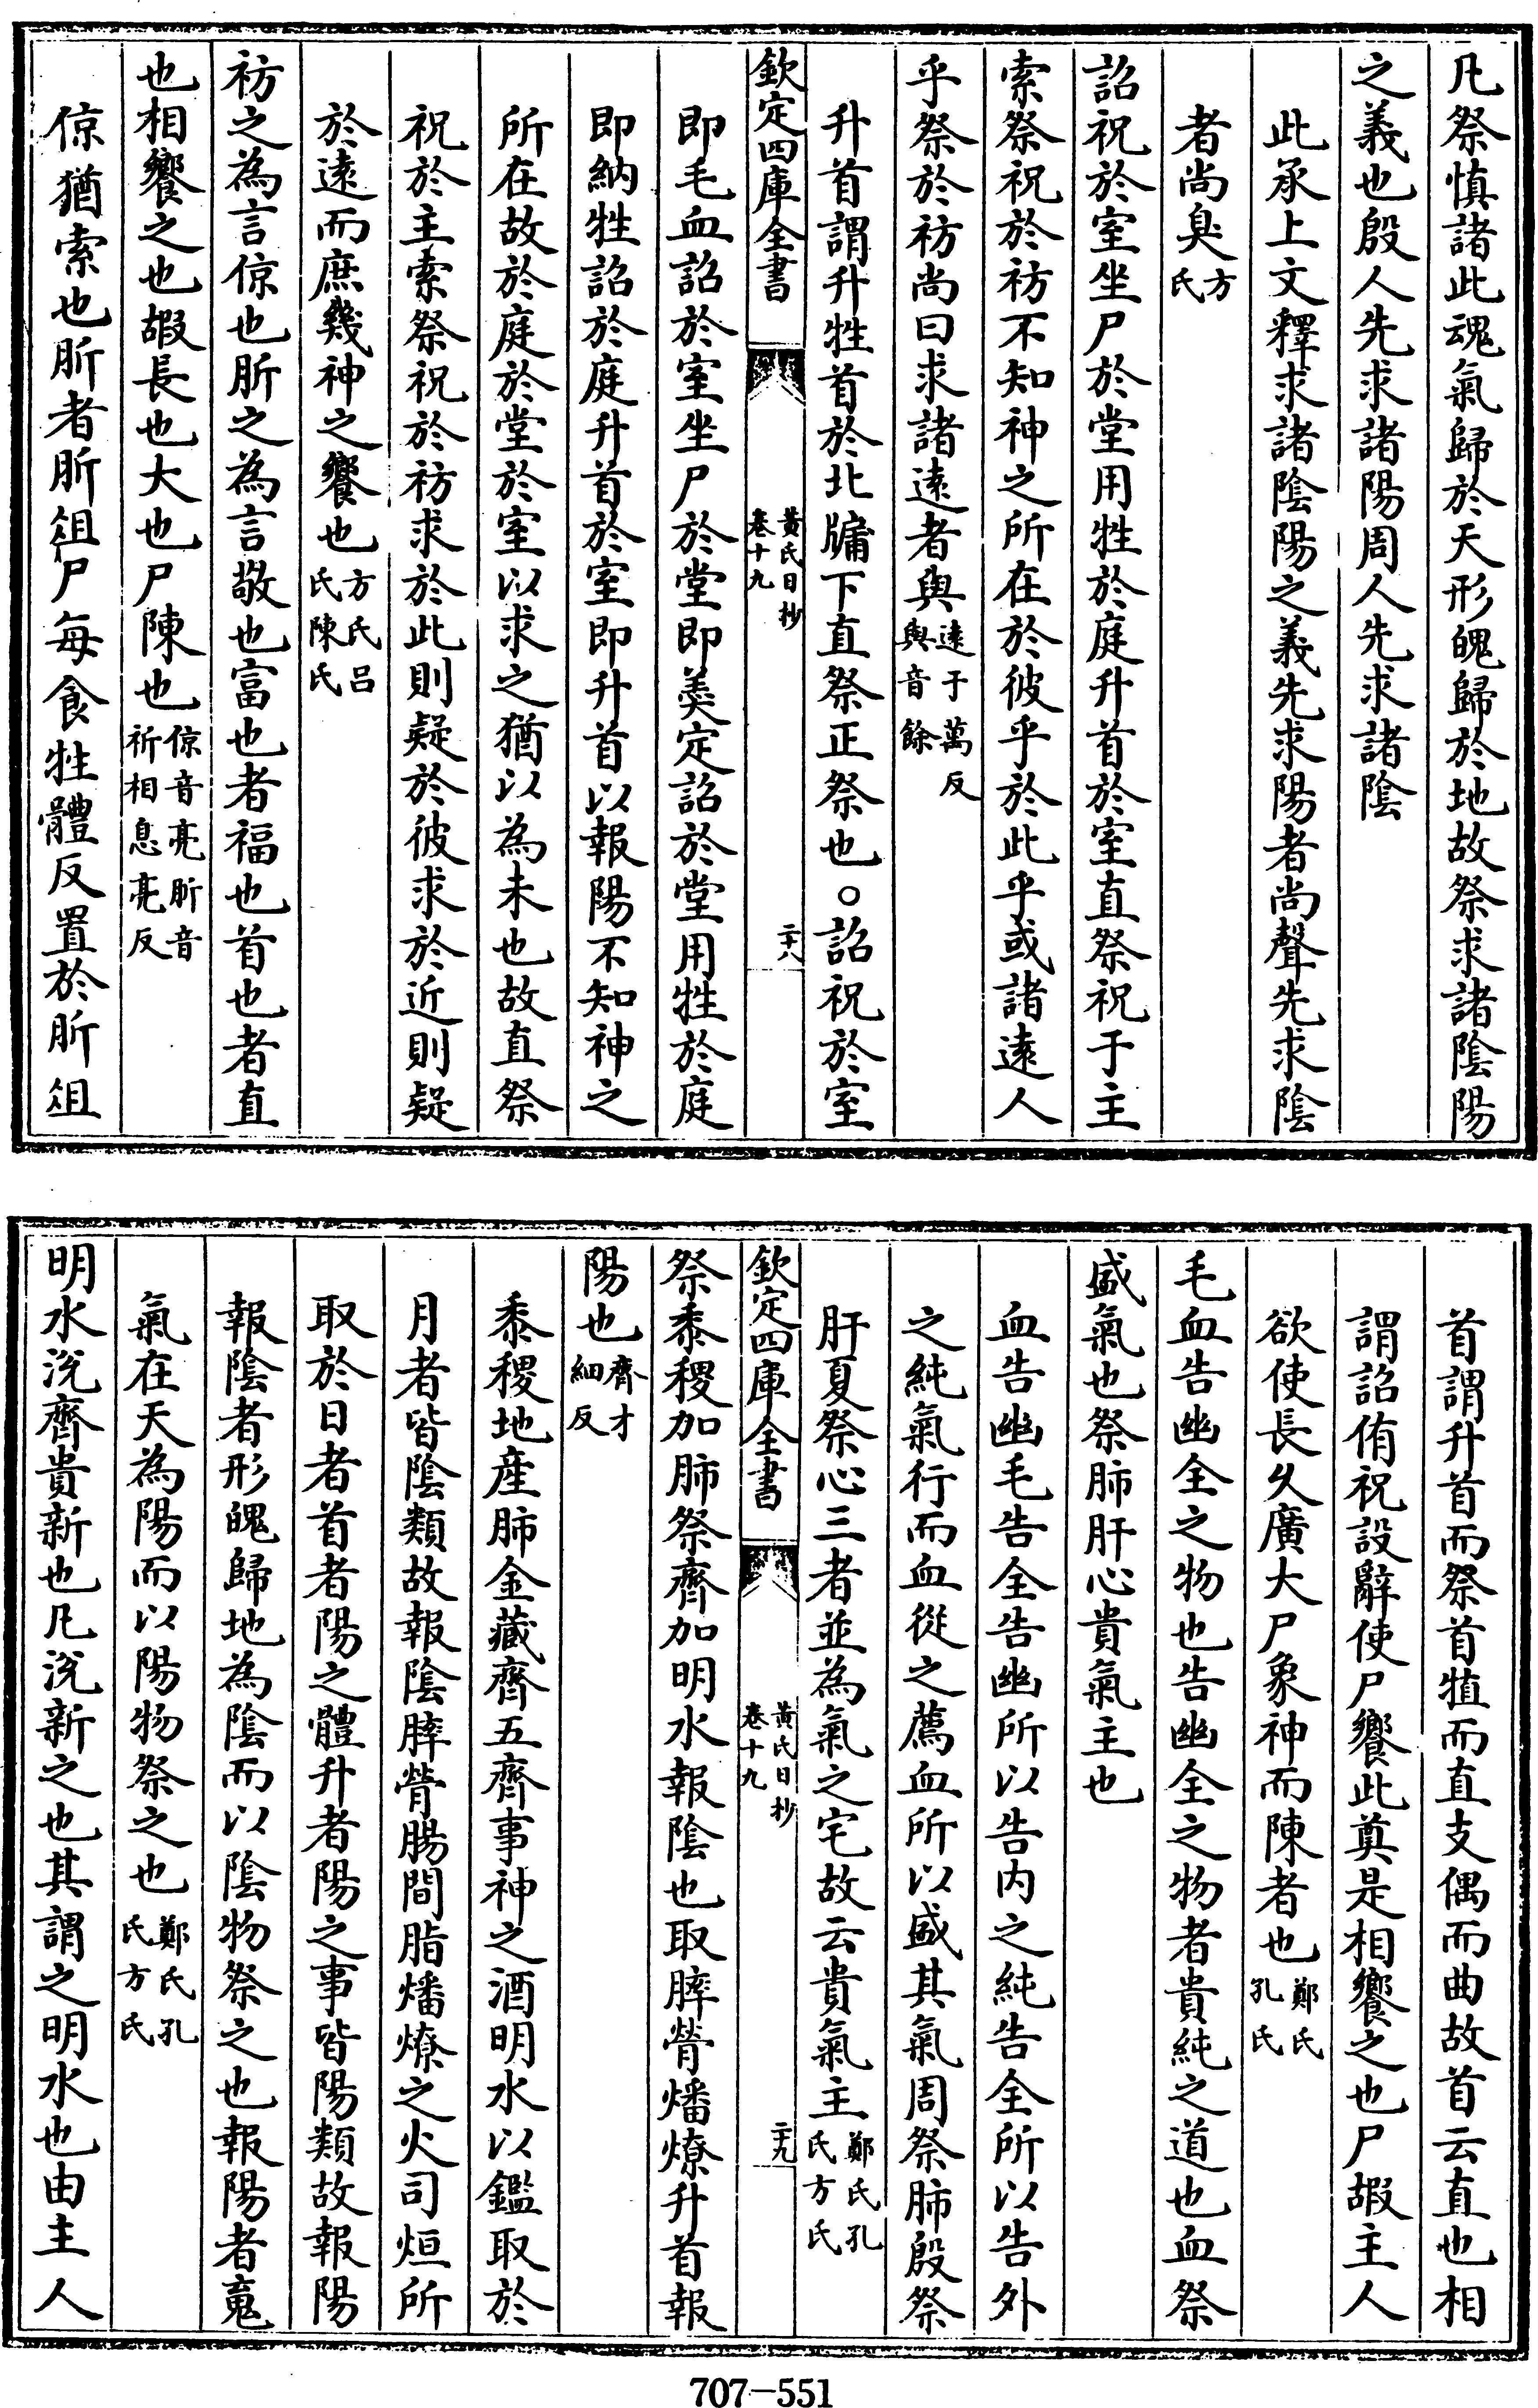 凡祭慎諸此魂氣歸於天形魄歸於地故祭求諸陰陽
之義也殷人先求諸陽周人先求諸陰
此承上文釋求諸陰陽之義先求陽者尚聲先求陰
者尚臭方氏
詔祝於室坐尸於堂用牲於庭升首於室直祭祝于主
索祭祝於祊不知神之所在於彼乎於此乎或諸逺人
乎祭於祊尚曰求諸逺者與逺于萬反與音餘
升首謂升牲首於北牖下直祭正祭也○詔祝於室
欽定四庫全書 黄氏日抄卷十九 二十八
即毛血詔於室坐尸於堂即羮定詔於堂用牲於庭
即納牲詔於庭升首於室即升首以報陽不知神之
所在故於庭於堂於室以求之猶以為未也故直祭
祝於主索祭祝於祊求於此則疑於彼求於近則疑
於逺而庶幾神之饗也方氏吕氏陳氏
祊之為言倞也肵之為言敬也富也者福也首也者直
也相饗之也嘏長也大也尸陳也倞音亮肵音祈相息亮反
倞猶索也肵者肵俎尸每食牲體反置於肵俎
首謂升首而祭首植而直支偶而曲故首云直也相
謂詔侑祝設辭使尸饗此奠是相饗之也尸嘏主人
欲使長久廣大尸象神而陳者也鄭氏孔氏
毛血告幽全之物也告幽全之物者貴純之道也血祭
盛氣也祭肺肝心貴氣主也
血告幽毛告全告幽所以告内之純告全所以告外
之純氣行而血從之薦血所以盛其氣周祭肺殷祭
肝夏祭心三者並為氣之宅故云貴氣主鄭氏孔氏方氏
欽定四庫全書 黄氏日抄卷十九 二十九
祭黍稷加肺祭齊加明水報陰也取膟膋燔燎升首報
陽也齊才細反
黍稷地産肺金藏齊五齊事神之酒明水以鑑取於
月者皆陰類故報陰膟膋腸間脂燔燎之火司烜所
取於日者首者陽之體升者陽之事皆陽類故報陽
報陰者形魄歸地為陰而以陰物祭之也報陽者䰟
氣在天為陽而以陽物祭之也鄭氏孔氏方氏
明水涚齊貴新也凡涚新之也其謂之明水也由主人
707-551